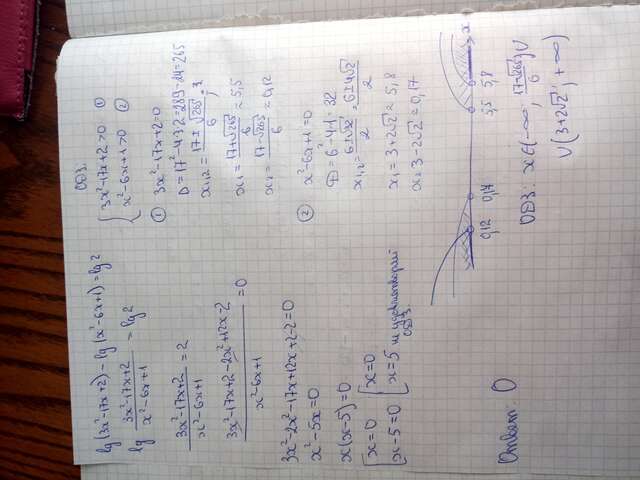 lg(3x²-17x+2) - lg(x²-6x+1) = lg2
lg (3x²-17x+2)/(x²-6x+1) = lg2
(3x²-17x+2)/(x²-6x+1) = 2
(3x²-17x+2-2x²+12x-2)/(x²-6x+1) = 0
3x²-2x²-17x+12x+2-2=0
x²-5x=0
x(x-5)=0
[x=0 [x=0
[x-5=0 [x=5 не удовлетворяет
ОДЗ
Ответ: 0
ОДЗ.
{3x²-17x+2>0 ①
{x²-6x+1>0 ②
① 3x²-17x+2=0
D=17²-4·3·2=289-24=265
x₁,₂ = (17±√265)/6
x₁ = (17+√265)/6 = 5,5
x₂ = (17-√265)/6 = 0,12
② x²-6x+1=0
D=6²-4·1=32
x₁,₂ = (6±√32)/2 = (6±4√2)/2
x₁ = 3+2√2 = 5,8
x₂ = 3-2√2 = 0,17
0,12 0,17 5,5 5,8 x
ОДЗ: x∈(-∞; (17-√265)/6)∪
∪(3+2√2; +∞)